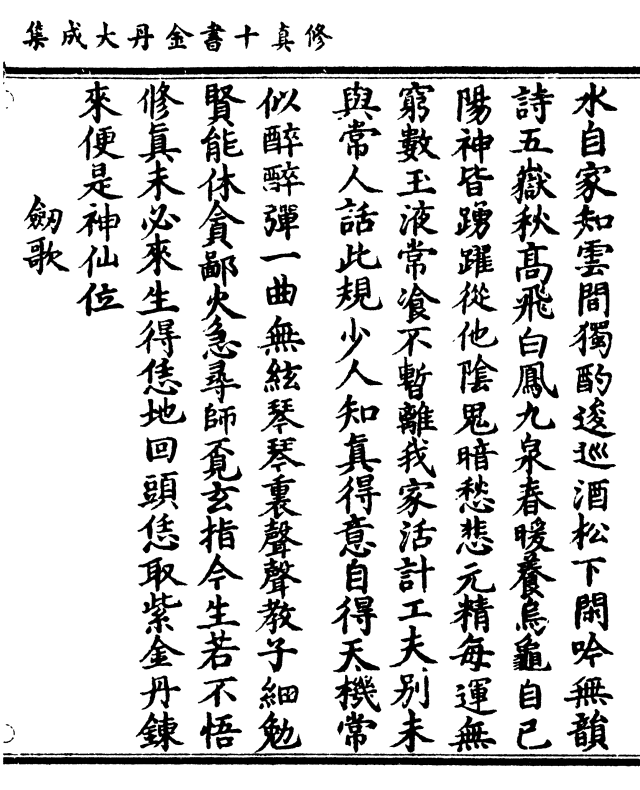 修真十書金丹大成集
水自家知雲間獨酌逡巡酒松下閑吟無韻
詩五嶽秋髙飛白鳳九泉春暖養烏龜自已
陽神皆踴躍從他陰鬼暗愁悲元精每運無
窮數玉液常飡不暫離我家活計工夫別未
與常人話此規少人知真得意自得天機常
似醉醉彈一曲無絃琴琴裏聲聲教子細勉
賢能休貪鄙火急尋師覔玄指今生若不悟
修真未必來生得恁地回頭恁取紫金丹鍊
來便是神仙位
劔歌